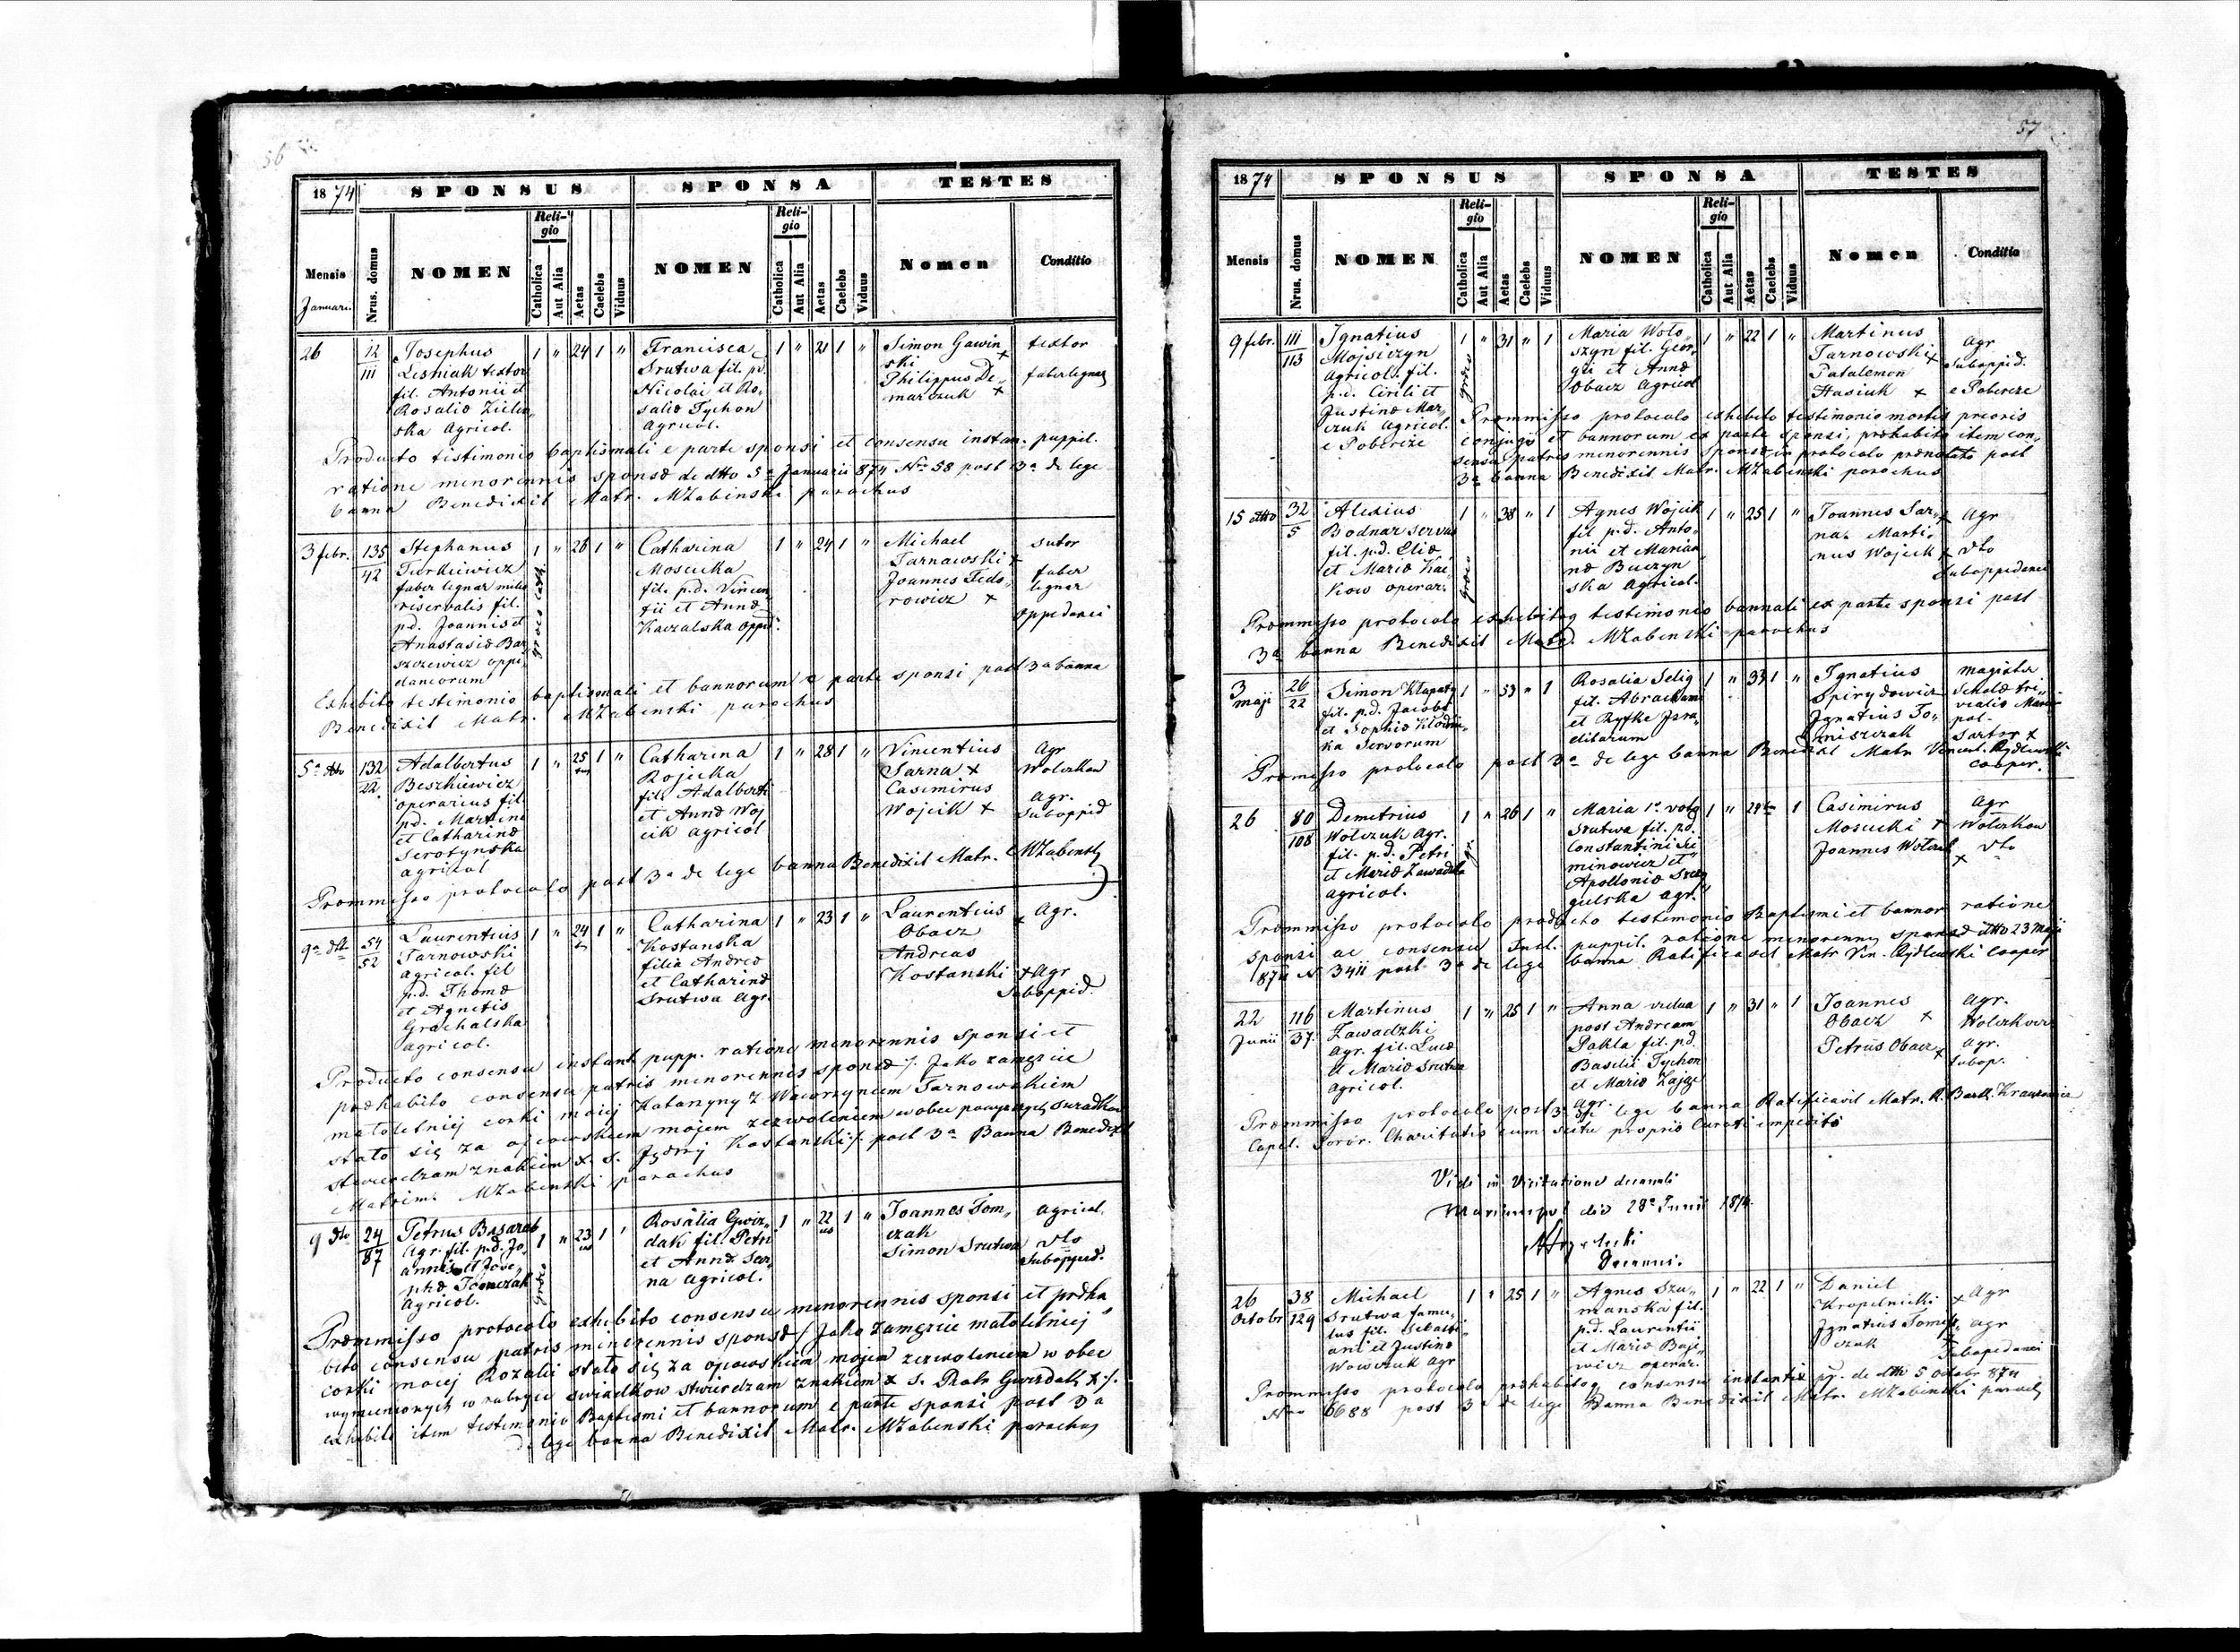 56
1874
SPONSUS
SPONSA
TESTES
Mensis
Januari.
Nrus. domus
NOMEN
Religio
Catholica
Aut Alia
Aetas
Caelebs
Viduus
NOMEN
Religio
Catholica
Aut Alia
Aetas
Caelebs
Viduus
Nomen
Conditio
26
12
111
Josephus
Lesniak textor
fil. Antonii et
Rosaliæ Zielin„
ska Agricol.
1 „ 24 1 „
Francisca
Srutwa fil. pd.
Nicolai et Ro„
saliæ Tychon
Agricol.
1 „ 21 1 „
Simon Gawin
ski +
Philippus De„
marczuk +
textor
faber lignar
Producto testimonio baptismali e parte sponsi et consensu instan. puppil.
ratione minorennis sponsæ de dtto 5a Januarii 874 No 58 post 3a de lege
banna Benedixit Matr. MZabinski parochus
3 febr.
135
42
Stephanus
Turkiewicz
faber lignar
riservalis fil.
pd. Joannis et
Anastasiæ Bar„
szczewicz oppi„
daneorum
1 „ 26 1 „
græco cath.
Catharina
Mosucka
fil. p.d. Vincen
tii et Annæ
Kaczalska oppid.
1 „ 24 1 „
Michael
Tarnawski +
Joannes Fedo„
rowicz +
sutor
faber
lignar
oppidanei
Exhibito testimonio baptismali et bannorum e parte sponsi post 3a banna
Benedixit Matr. MZabinski parochus
5a dtto
132
22
Adalbertus
Beszkiewicz
operarius fil.
pd. Martini
et Catharinæ
Serotynska
agricol
1 „ 25 1 „
Catharina
Rojecka
fil. Adalberti
et Annæ Woj
cik agricol
1 „ 28 1 „
Vincentius
Sarna +
Casimirus
Wojcik +
Agr
Wolczkow
Agr.
Suboppid
Præmmisso protocolo post 3a de lege banna Benedixit Matr. MZabinski
9a dtto
54
52
Laurentius
Tarnowski
agricol. fil
p.d. Thomæ
et Agnetis
Grochalska
agricol.
1 „ 24 1 „
Catharina
Kostanska
filia Andreæ
et Catharinæ
Srutwa Agr.
1 „ 23 1 „
Laurentius
Obacz +
Andreas
Kostanski +
Agr.
Agr
Suboppid.
Producto consensu instant. pupp. ratione minorennis sponsi et
prohabito consensu patris minorennis sponsæ /. Jako zamęzcie
małoletniej corki mojej Katarzyny z Wawrzyncem Tarnowskiem
stało się za ojcowskiem mojem zezwoleniem w obec powyższych swiadkow
stwierdzam znakiem +. s. Jędrzej Kostanski /. post 3a Banna Benedixit
Matrim. MZabinski parochus
9 dto
24
87
Petrus Basarab
Agr. fil. p.d. Jo„
annis et Jose„
phæ Tomczak
Agricol.
1 „ 23 1 „
græco
Rosalia Gwiz„
dak fil. Petri
et Annæ Sar„
na Agricol.
1 „ 22 1 „
Joannes Tom„
czak
Simon Srutwa
Agricol.
dto
Suboppid.
Præmmisso protocolo exhibito consensu minorennis sponsi et proha
bito consensu patris minorennis sponsæ / Jako zamęzcie małoletniej
corki mojej Rozalii stało się za ojcowskiem mojem zezwoleniem w obec
wymienionych w rubryce swiadkow stwierdzam znakiem + s. Piotr Gwizdak +/.
exhibito item testimonio Baptismi et bannorum e parte sponsi post 3a
de lege banna Benedixit Matr. MZabinski parochus
57
1874
SPONSUS
SPONSA
TESTES
Mensis
Nrus. domus
NOMEN
Religio
Catholica
Aut Alia
Aetas
Caelebs
Viduus
NOMEN
Religio
Catholica
Aut Alia
Aetas
Caelebs
Viduus
Nomen
Conditio
9 febr.
111
113
Ignatius
Mojsiczyn
Agricola fil.
p.d. Cirili et
Justinæ Mar„
czuk Agricol.
e Pobereże
1 „ 31 „ 1
græco
Maria Woło„
szyn fil. Geor„
gii et Annæ
Obacz Agricol
1 „ 22 1 „
Martinus
Tarnowski +
Patalemon
Stasiuk +
Agr
Suboppid.
e Pobereże
Præmmisso protocolo exhibito testimonio mortis prioris
conjugis et bannorum ex parte sponsi, prohabito item con„
sensu patris minorennis sponsæ in protocolo prænotato post
3a banna Benedixit Matr. MZabinski parochus
15 dtto
32
5
Alexius
Bodnar servus
fil. p.d. Eliæ
et Mariæ Kac„
kow operar.
1 „ 38 „ 1
græco
Agnes Wojcik
fil p.d. Anto„
nii et Marian
næ Buczyn
ska Agricol.
1 „ 25 1 „
Joannes Sar„ +
na Marti„
nus Wojcik +
Agr
dto
Suboppidanei
Præmmisso protocolo exhibitoq testimonio bannali ex parte sponsi post
3a banna Benedixit Matr. MZabinski parochus
3
maji
26
22
Simon Kłapaty
fil. p.d. Jacobi
et Sophiæ Kłodnic„
ka Servorum
1 „ 53 „ 1
Rosalia Selig
fil. Abrahami
et Ryfke Isra„
elitarum
1 „ 33 1 „
Ignatius
Spirydowicz
Ignatius To„
miszczak
magister
Scholæ tri„
vialis Mariam
pol.
Sartor +
Præmisso protocolo post 3a de lege banna Benedixit Matr Vincent. Rydlewski
cooper.
26
80
108
Demetrius
Wolczuk Agr.
fil. p.d. Petri
et Mariæ Zawadzka
agricol.
1 „ 26 1 „
gr.
Maria 1o voto
Srutwa fil. pd.
Constantini Si
minowicz et
Apolloniæ Szczy
gielska agr.
1 „ 24 „ 1
Casimirus
Mosucki +
Joannes Wolczuk +
Agr
Wolczkow
dto
Præmmisso protocolo producto testimonio Baptismi et bannor ratione
sponsi ac consensu Inst. puppil. ratione minorennis sponsæ dtto 23 Maji
874 N 3411 post 3a de lege banna Ratificavit Matr Vin. Rydlewski Cooper
22
Junii
116
37
Martinus
Zawadzki
Agr. fil. Lucæ
et Mariæ Srutwa
agricol.
1 „ 25 1 „
Anna vidua
post Andream
Pakla fil. pd.
Basilii Tychon
et Mariæ Zając
agr.
1 „ 31 „ 1
Joannes
Obacz +
Petrus Obacz +
Agr.
Wolczkow
agr.
Subop.
Præmmisso protocolo post 3a de lege banna Ratificavit Matr. R. Barth.
Capel. Soror. Charitatis cum scitu proprio Curati impediti
Vidi in Visitatione decanali
Mariampol die 28a Junii 1874.
Decanus.
26
Octobr
38
129
Michael
Srutwa famu„
lus fil. Sebasti„
ani et Justinæ
Wowczuk Agr
1 „ 25 1 „
Agnes Szu„
manska fil.
p.d. Laurentii
et Mariæ Basie
wicz operar.
1 „ 22 1 „
Daniel
Kropelnicki +
Ignatius Tomisz„
czak +
Agr
agr
Subopidanei
Præmmisso protocolo prohabitoq consensu instantiæ pp. de dtto 5 octobr 874
Nro 6688 post 3a de lege Banna Benedixit Matr. MZabinski paroch